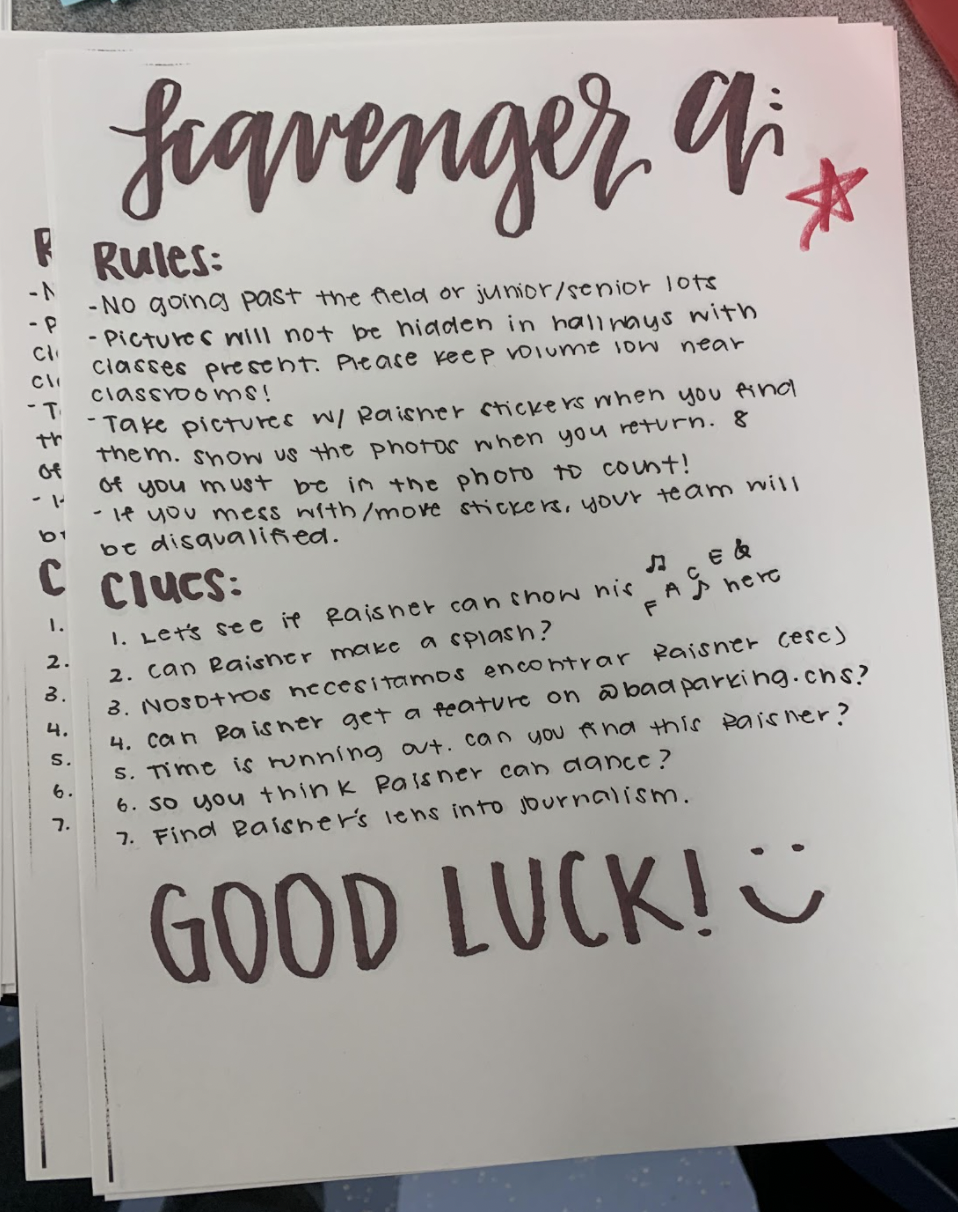 Scavenger
Rules:
-No going past the field or junior/senior lots
-Pictures will not be hidden in hallways with
classes present. Please keep volume low near
classrooms!
-Take pictures w/ Raisner stickers when you find
them. Show us the photos when you return. 8
of you must be in the photo to count!
-If you mess with/move stickers, your team will
be disqualified.
Clues:
1. Let's see if Raisner can show his ♫ F A C E & ♪ here
2. Can Raisner make a splash?
3. Nosotros necesitamos encontrar Raisner (esc)
4. Can Raisner get a feature on @badparking.chs?
5. Time is running out. Can you find this Raisner?
6. So you think Raisner can dance?
7. Find Raisner's lens into journalism.
GOOD LUCK!
R
-N
-P
cl
cl
-T
th
of
-I
be
C
1.
2.
3.
4.
5.
6.
7.